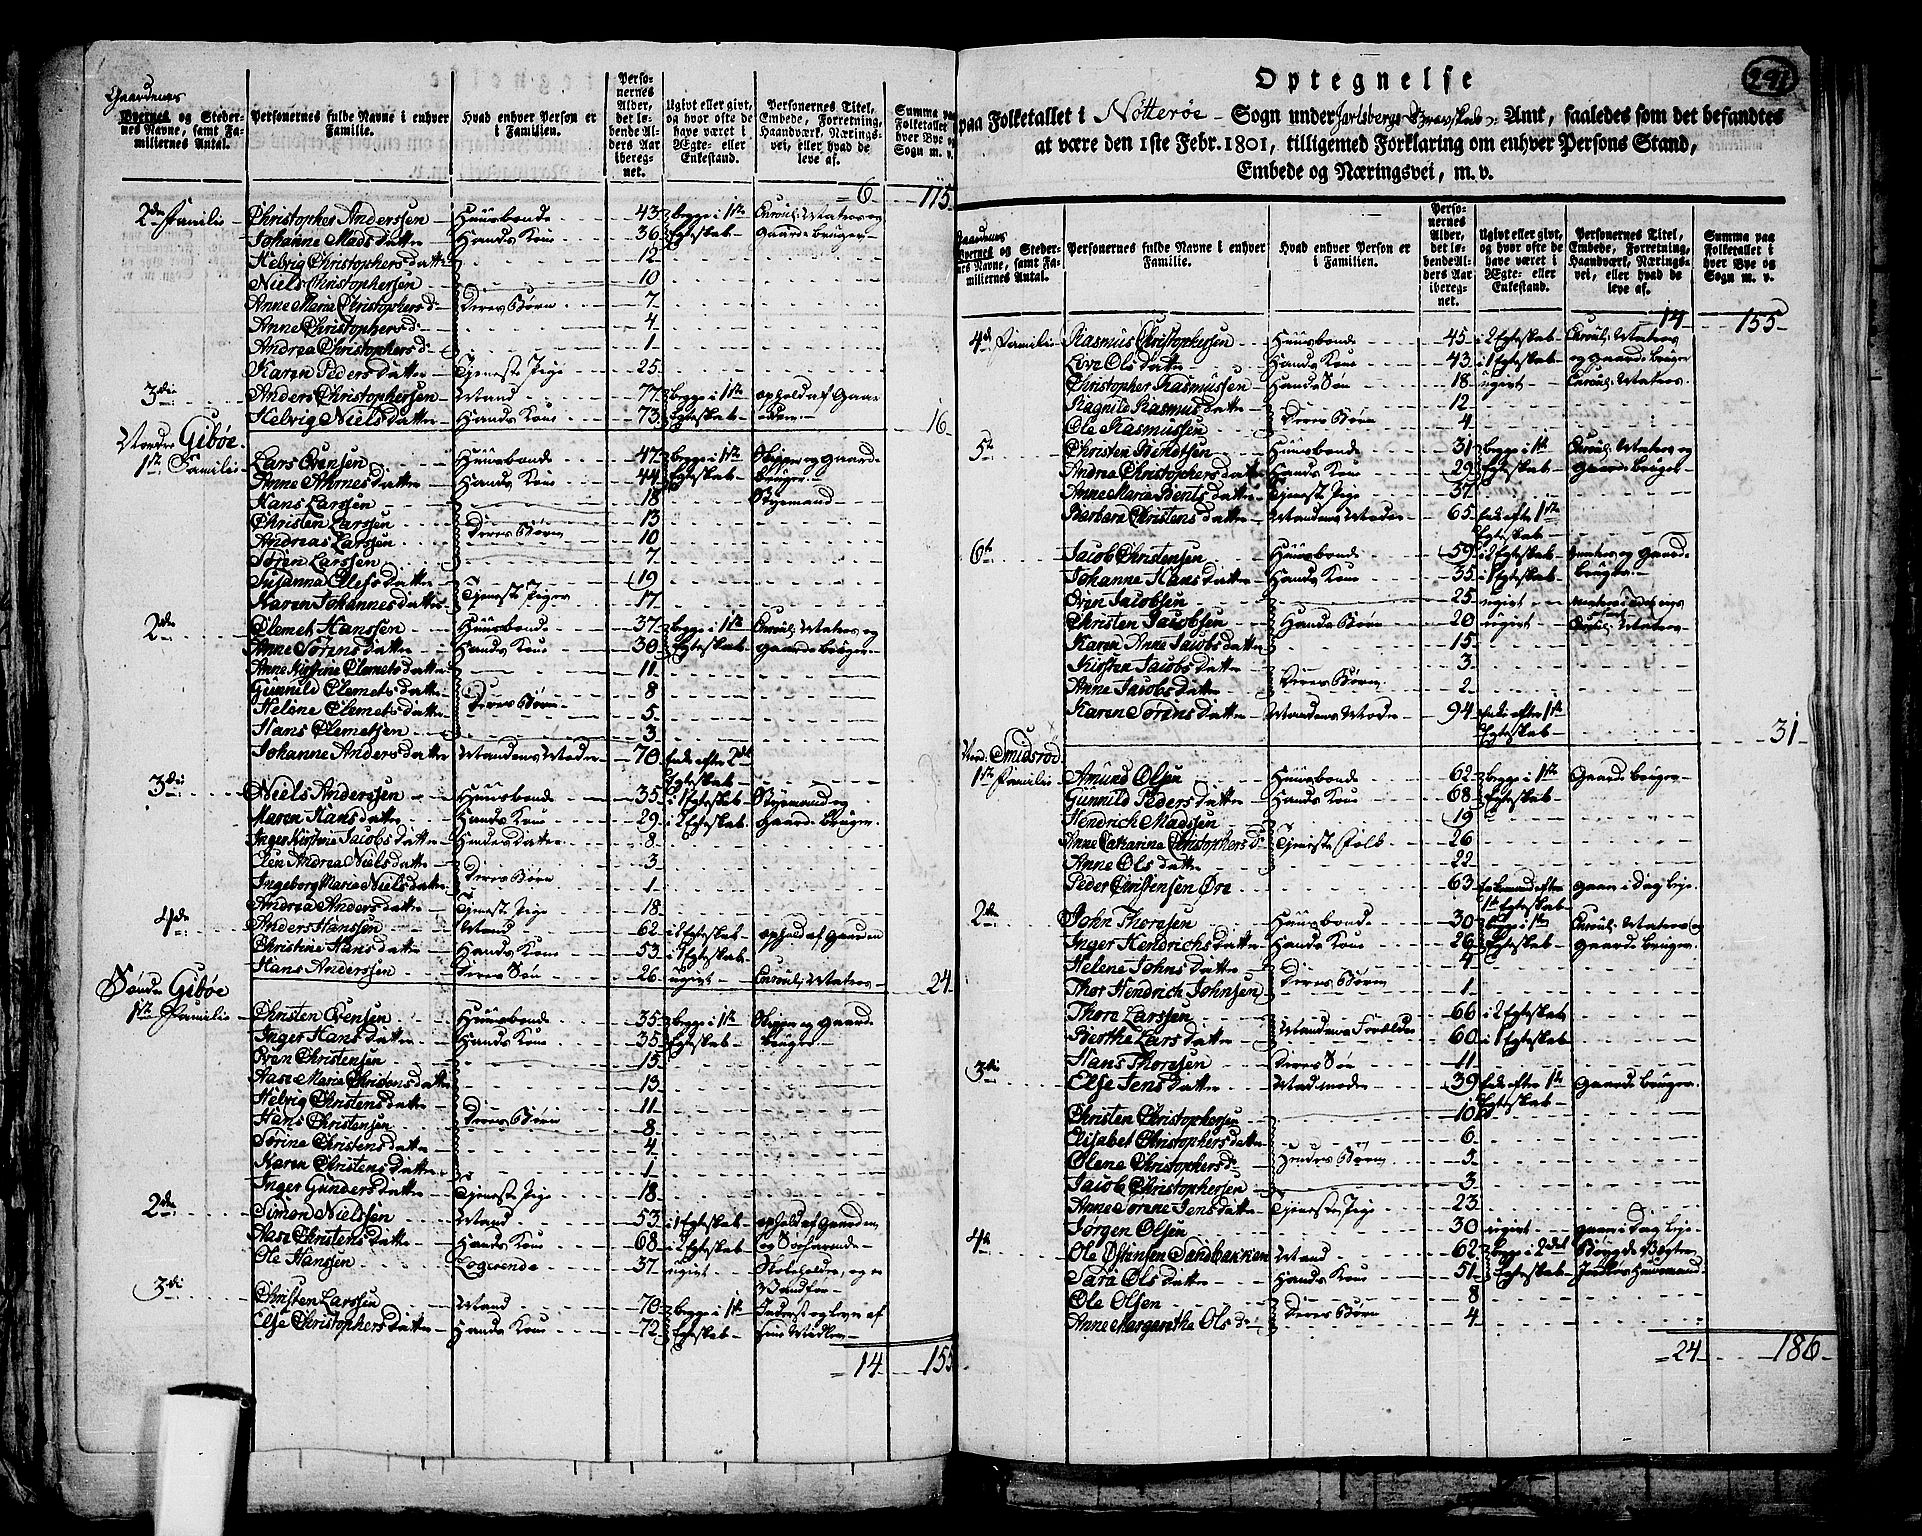 Gaardenes
Byernes og Steder-
nes Navne, samt Fa-
miliernes Antal.
Personernes fulde Navne i enhver
Familie.
Hvad enhver Person er
i Familien.
Perso-
nernes
Alder,
det le-
bende Al-
ders Aar
iberegnet.
Ugivt eller givt,
og hvor ofte de
have været i
Ægte- eller
Enkestand.
Personernes Titel,
Embede, Forretning,
Haandværk, Nærings-
vei, eller hvad de
leve af.
Summa paa
Folketallet i
hver Bye og
Sogn m. v.
6 115
2den Familie Christopher Anderssen Huusbonde 43 begge i 1ste Enroul: Matros og
Johanne Mads datter Hands Kone 36 Egteskab Gaardebruger
Helvig Christophers datter 12
Niels Christophersen 10
Anne Maria Christophers d: Deres Børn 7
Anne Christophers d: 4
Andrea Christophers d: 1
Karen Peders datter Tjeneste Pige 25
3die Anders Christophersen Mand 77 begge i 1ste ophold af Gaar
Helvig Niels datter Hands Kone 73 Egteskab den 16
Nordre Giböe
1ste Familie Lars Evensen Huusbonde 47 begge i 1ste Skipper og Gaard
Anne Ahrnes datter Hands Kone 44 Egteskab bruger
Hans Larssen 18 Styrmand
Christen Larssen 13
Andreas Larssen Deres Børn 10
Søren Larssen 7
Susanna Olefs datter 19
Karen Johannes datter Tjeneste Piger 17
2den Clemet Hanssen Huusbonde 37 begge i 1ste Enroul: Matros og
Anne Sörens datter Hands Kone 30 Egteskab Gaardebruger
Anne Kirstine Clemets datter 11
Gunnild Clemets datter 8
Helene Clemets datter Deres Børn 5
Hans Clemetsen 3
Johanne Anders datter Mandens Moder 70 Enke efter 2det
Egteskab
3die Niels Anderssen Huusbonde 35 i 1 Egteskab Styrmand og
Maren Hans datter Hands Kone 29 i 2 Egteskab Gaardebruger
Inger Kirstine Jacobs datter Hendes Datter 8
Elen Andrea Niels datter 3
Ingeborg Marie Niels datter Deres Børn 1
Andrea Anders datter Tjeneste Pige 18
4de Anders Hanssen Mand 62 i 2 Egteskab ophold af Gaarden
Christine Hans datter Hands Kone 53 i 1 Egteskab
Hans Anderssen Deres Søn 26 ugivt Enroul: Matros 24
Söndre Giböe
1ste Familie Christen Evensen Huusbonde 35 begge i 1ste Skipper og Gaard
Inger Hans datter Hands Kone 35 Egteskab bruger
Even Christensen 15
Aase Maria Christens datter 13
Helvig Christens datter 11
Hans Christensen Deres Børn 8
Sörine Christens datter 4
Karen Christens datter 1
Inger Gunders datter Tjeneste Pige 18
2den Simon Nielssen Mand 53 i 1 Egteskab ophold af Gaarden
Aase Christens datter Hands Kone 68 i 2 Egteskab og Søefarende
Ole Hanssen Logerende 37 ugivt
3die Christen Larssen Mand 70 begge i 1ste
Else Christophers datter Hands Kone 72 Egteskab sine Midler
14 155
291
Optegnelse
paa Folketallet i Nötteröe Sogn under Jarlsbergs Grevskabs Amt, saaledes som det befandtes
at være den 1ste Febr. 1801, tilligemed Forklaring om enhver Persons Stand,
Embede og Næringsvei, m. v.
Gaardenes
Byernes og Steder-
nes Navne, samt Fa-
miliernes Antal.
Personernes fulde Navne i enhver
Familie.
Hvad enhver Person er
i Familien.
Perso-
nernes
Alder,
det le-
bende Al-
ders Aar
iberegnet.
Ugivt eller givt,
og hvor ofte de
have været i
Ægte- eller
Enkestand.
Personernes Titel,
Embede, Forretning,
Haandværk, Nærings-
vei, eller hvad de
leve af.
Summa paa
Folketallet i
hver Bye og
Sogn m. v.
14 155
4de Familie Rasmus Christophersen Huusbonde 45 i 2 Egteskab Enroul: Matros
Live Ols datter Hands Kone 43 i 1 Egteskab og Gaardebruger
Christopher Rasmussen Hands Søn 18 ugivt Enroul: Matros
Ragnild Rasmus datter 12
Ole Rasmussen Deres Børn 4
5te Christen Berndtsen Huusbonde 31 begge i 1ste Enroul: Matros og
Andrea Christophers datter Hands Kone 29 Egteskab Gaardebruger
Anne Maria Bents datter Tjeneste Pige 37
Barbara Christens datter Mandens Moder 65 Enke efter 1ste
Egteskab
6te Jacob Christensen Huusbonde 59 i 2 Egteskab Matros og Gaard
Johanne Hans datter Hands Kone 35 i 1 Egteskab bruger
Even Jacobsen 25 ugivt
Christen Jacobsen Hands Børn 20 ugivt Enroul: Matros
Karen Anne Jacobs datter 15
Kirsten Jacobs datter 3
Anne Jacobs datter Deres Børn 2
Karen Sörens datter Mandens Moder 94 Enke efter 1ste
Egteskab 31
Nord: Smidsröd
1ste Familie Amund Olsen Huusbonde 62 begge i 1ste Gaardebruger
Gunnild Peders datter Hands Kone 68 Egteskab
Hendrich Madssen 19
Anne Catharina Christophers d: Tjeneste Folk 26
Anne Ols datter 22
Peder Christensen Öra 63 Enkemand efter gaar i Dagleje
1ste Egteskab
2den John Thoresen Huusbonde 30 begge i 1ste Enroul: Matros og
Inger Hendrichs datter Hands Kone 26 Egteskab Gaardebruger
Helene Johns datter 4
Thor Hendrich Johnsen Deres Børn 1
Thore Larssen 66 i 2 Egteskab
Berthe Lars datter Mandens Forældre 60 i 1 Egteskab
Hans Thoresen Deres Søn 11
3die Else Jens datter Madmoder 39 Enke efter 1ste Gaardebruger
Egteskab
Christen Christophersen 10
Elisabet Christophers datter 6
Olene Christophers d: Hendes Børn 5
Jacob Christophersen 3
Anne Sörene Jens datter Tjeneste Pige 23
Jørgen Olsen 30 ugivt gaar i Dagleje
4de Ole Östensen Sandbakken Mand 62 begge i 2det Bøygde Vægter
Sara Ols datter Hands Kone 51 Egteskab Jordløs Huusmand
Ole Olsen 8
Anne Margarethe Ols d: Deres Børn 4
24 186